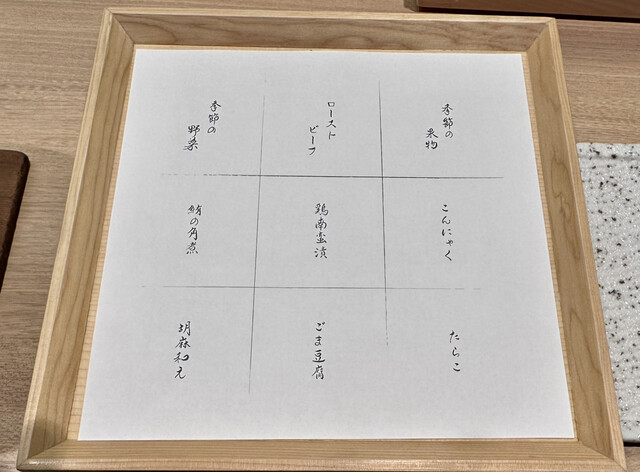 季節の
果物
ロースト
ビーフ
季節の
野菜
こんにゃく
鶏南蛮漬
鮪の角煮
たらこ
ごま豆腐
胡麻和え